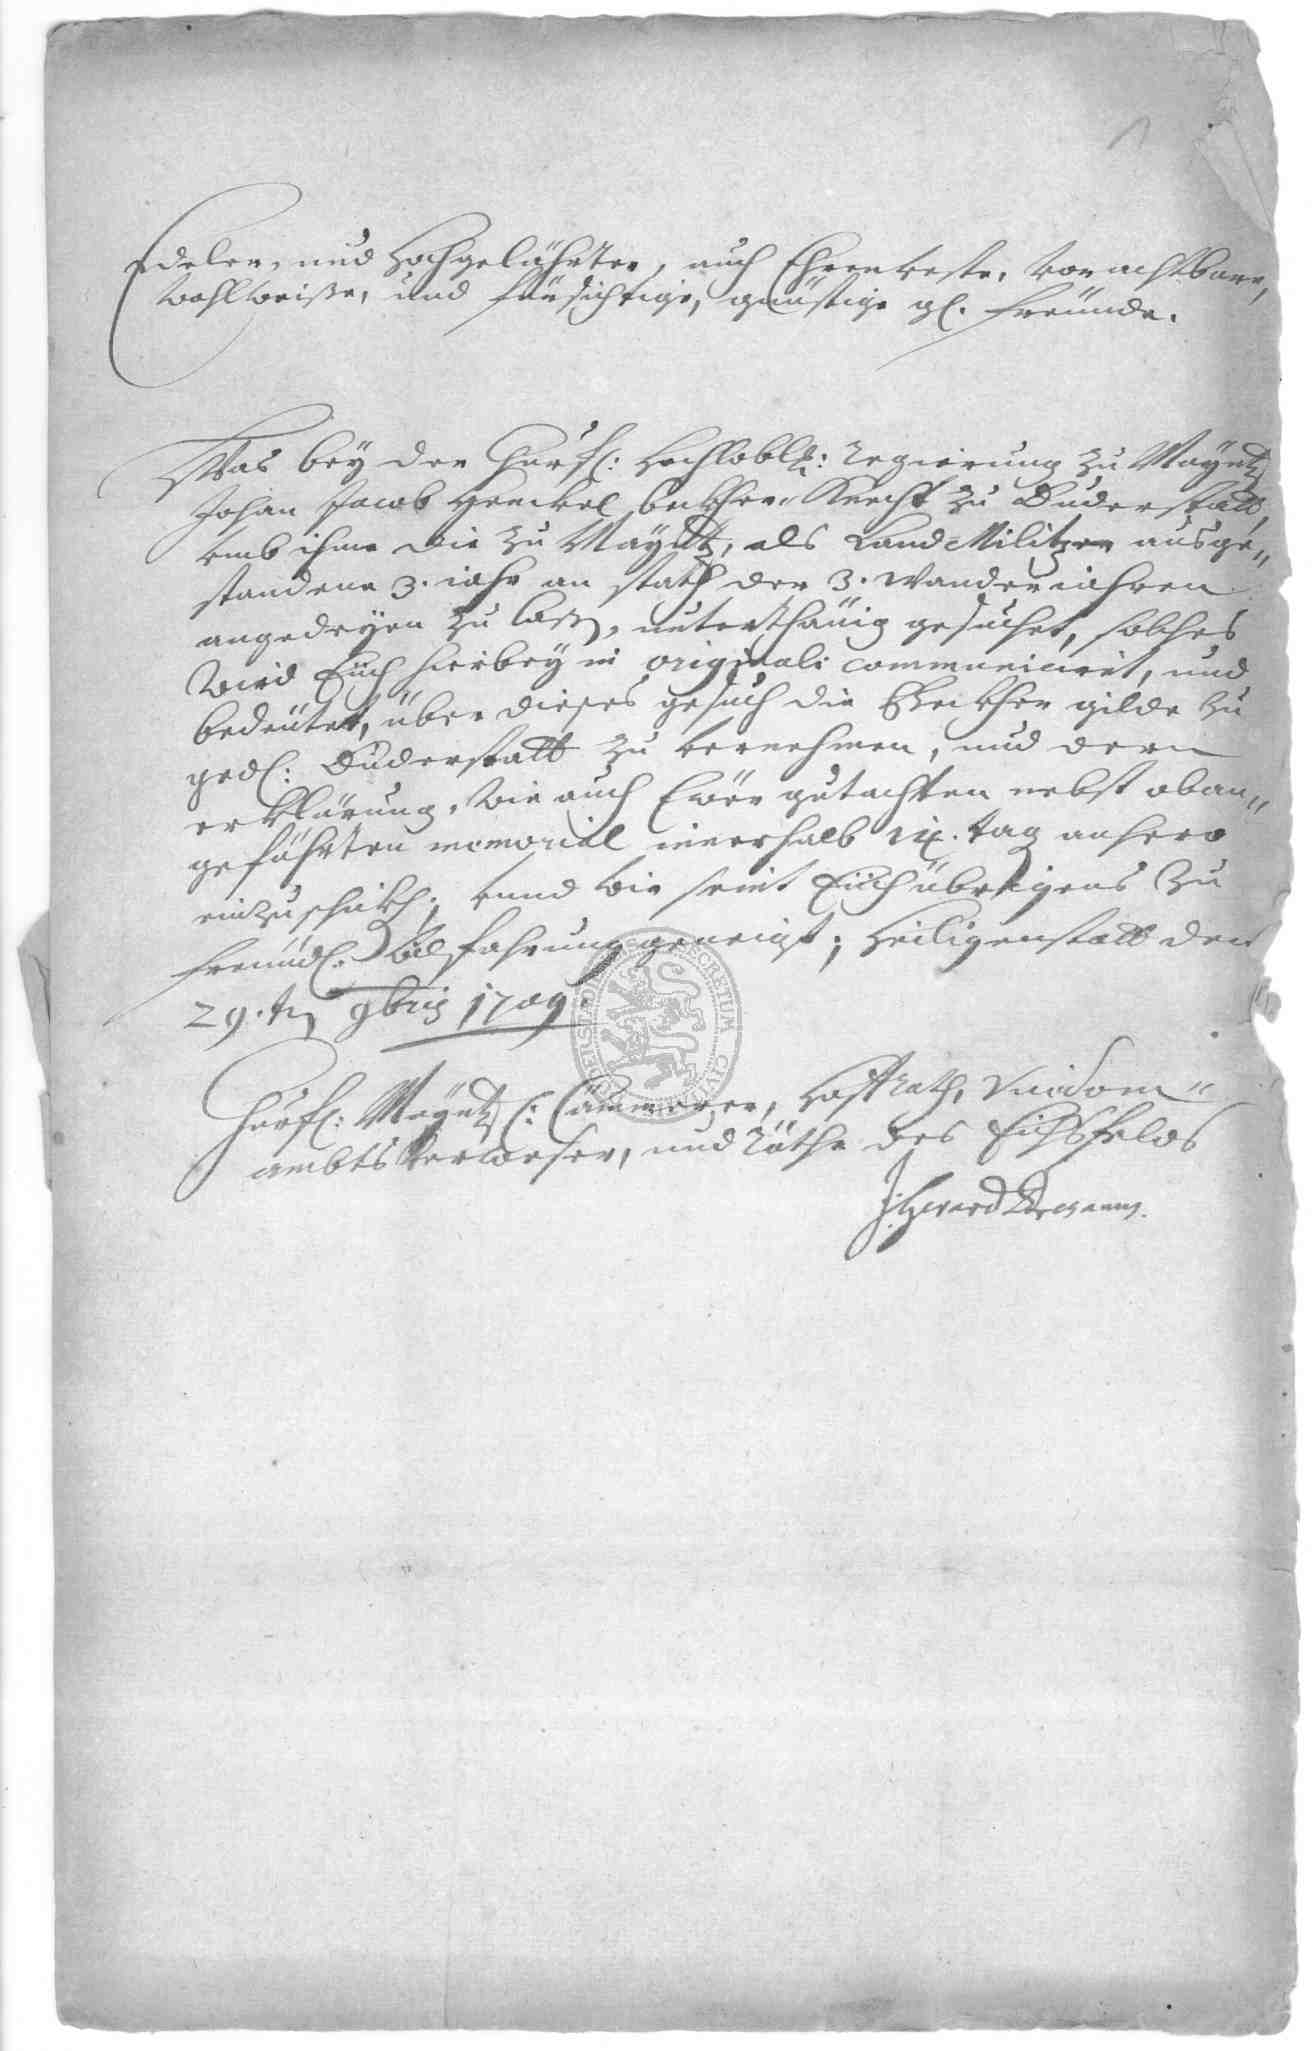 Edeler, und Hochgelährter, auch Ehrenveste, vorachtbare,
wohlweiße, und fürsichtige, günstige gl. freünde.
Was bey der Churfl: Hochlöbl: Regierung zu Mayntz
Johan Jacob Henckel becker Knecht zu Duderstatt,
umb ihme die zu Mayntz, als Land Militzen ausge„
standene 3. iahr an stath der 3. Wander iahren
angedeyen zu laßen, unterthänig gesuchet, solches
wird Euch hierbey in originali communicirt, und
bedeütet, über dieses gesuch die Beckher gilde zu
gedl: Duderstatt zu vernehmen, und deren
erklärung, wie auch Ewer gutachten nebst oban„
geführten memorial innerhalb tag anhero
einzuschickhen, und wir seint Euch übrigens zu
freündl: wilfahrung geneigt; Heiligenstatt den
29.ten 9bris 1709.
Churfl: Mayntz: Cämmerer, Hoffrath, Vicidom„
ambts verweser, und Räthe des Eichsfelds